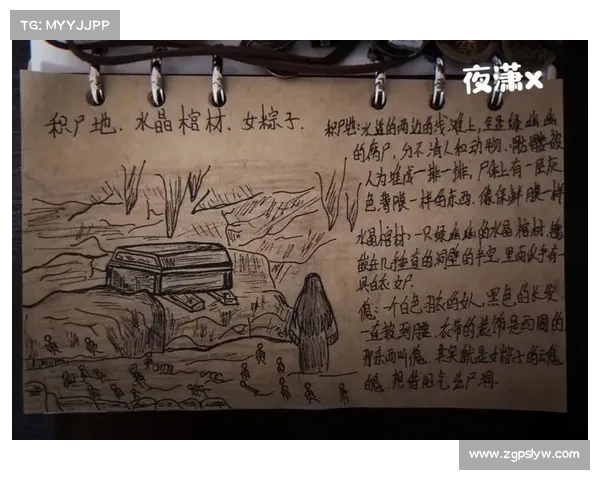 TG: MYYJJPP
夜潇x
积尸地、水晶棺材、女粽子.
积尸地:水道的两边的浅滩上,全是绿幽幽
的腐尸,分不清人和动物.骷髅被
人为堆成一排一排,尸体上有一层灰
色薄膜一样的东西.像保鲜膜一样
水晶棺材:一只绿幽幽的水晶棺材,镶
嵌在几乎垂直的洞壁的半空.里面似乎有一
具白衣女尸
傀:一个白色羽衣的女人,黑色的长发
一直披到腰.衣带的装饰是西周的
那东西叫傀.其实就是女粽子的云魂
魄,想借阳气出尸洞.
www.zgpslyw.com